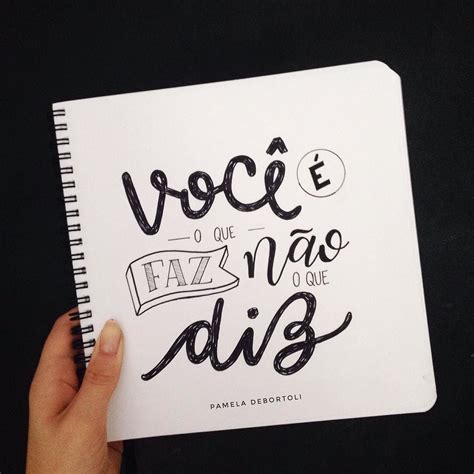 você É
O QUE
FAZ não
O QUE
diz
PAMELA DEBORTOLI